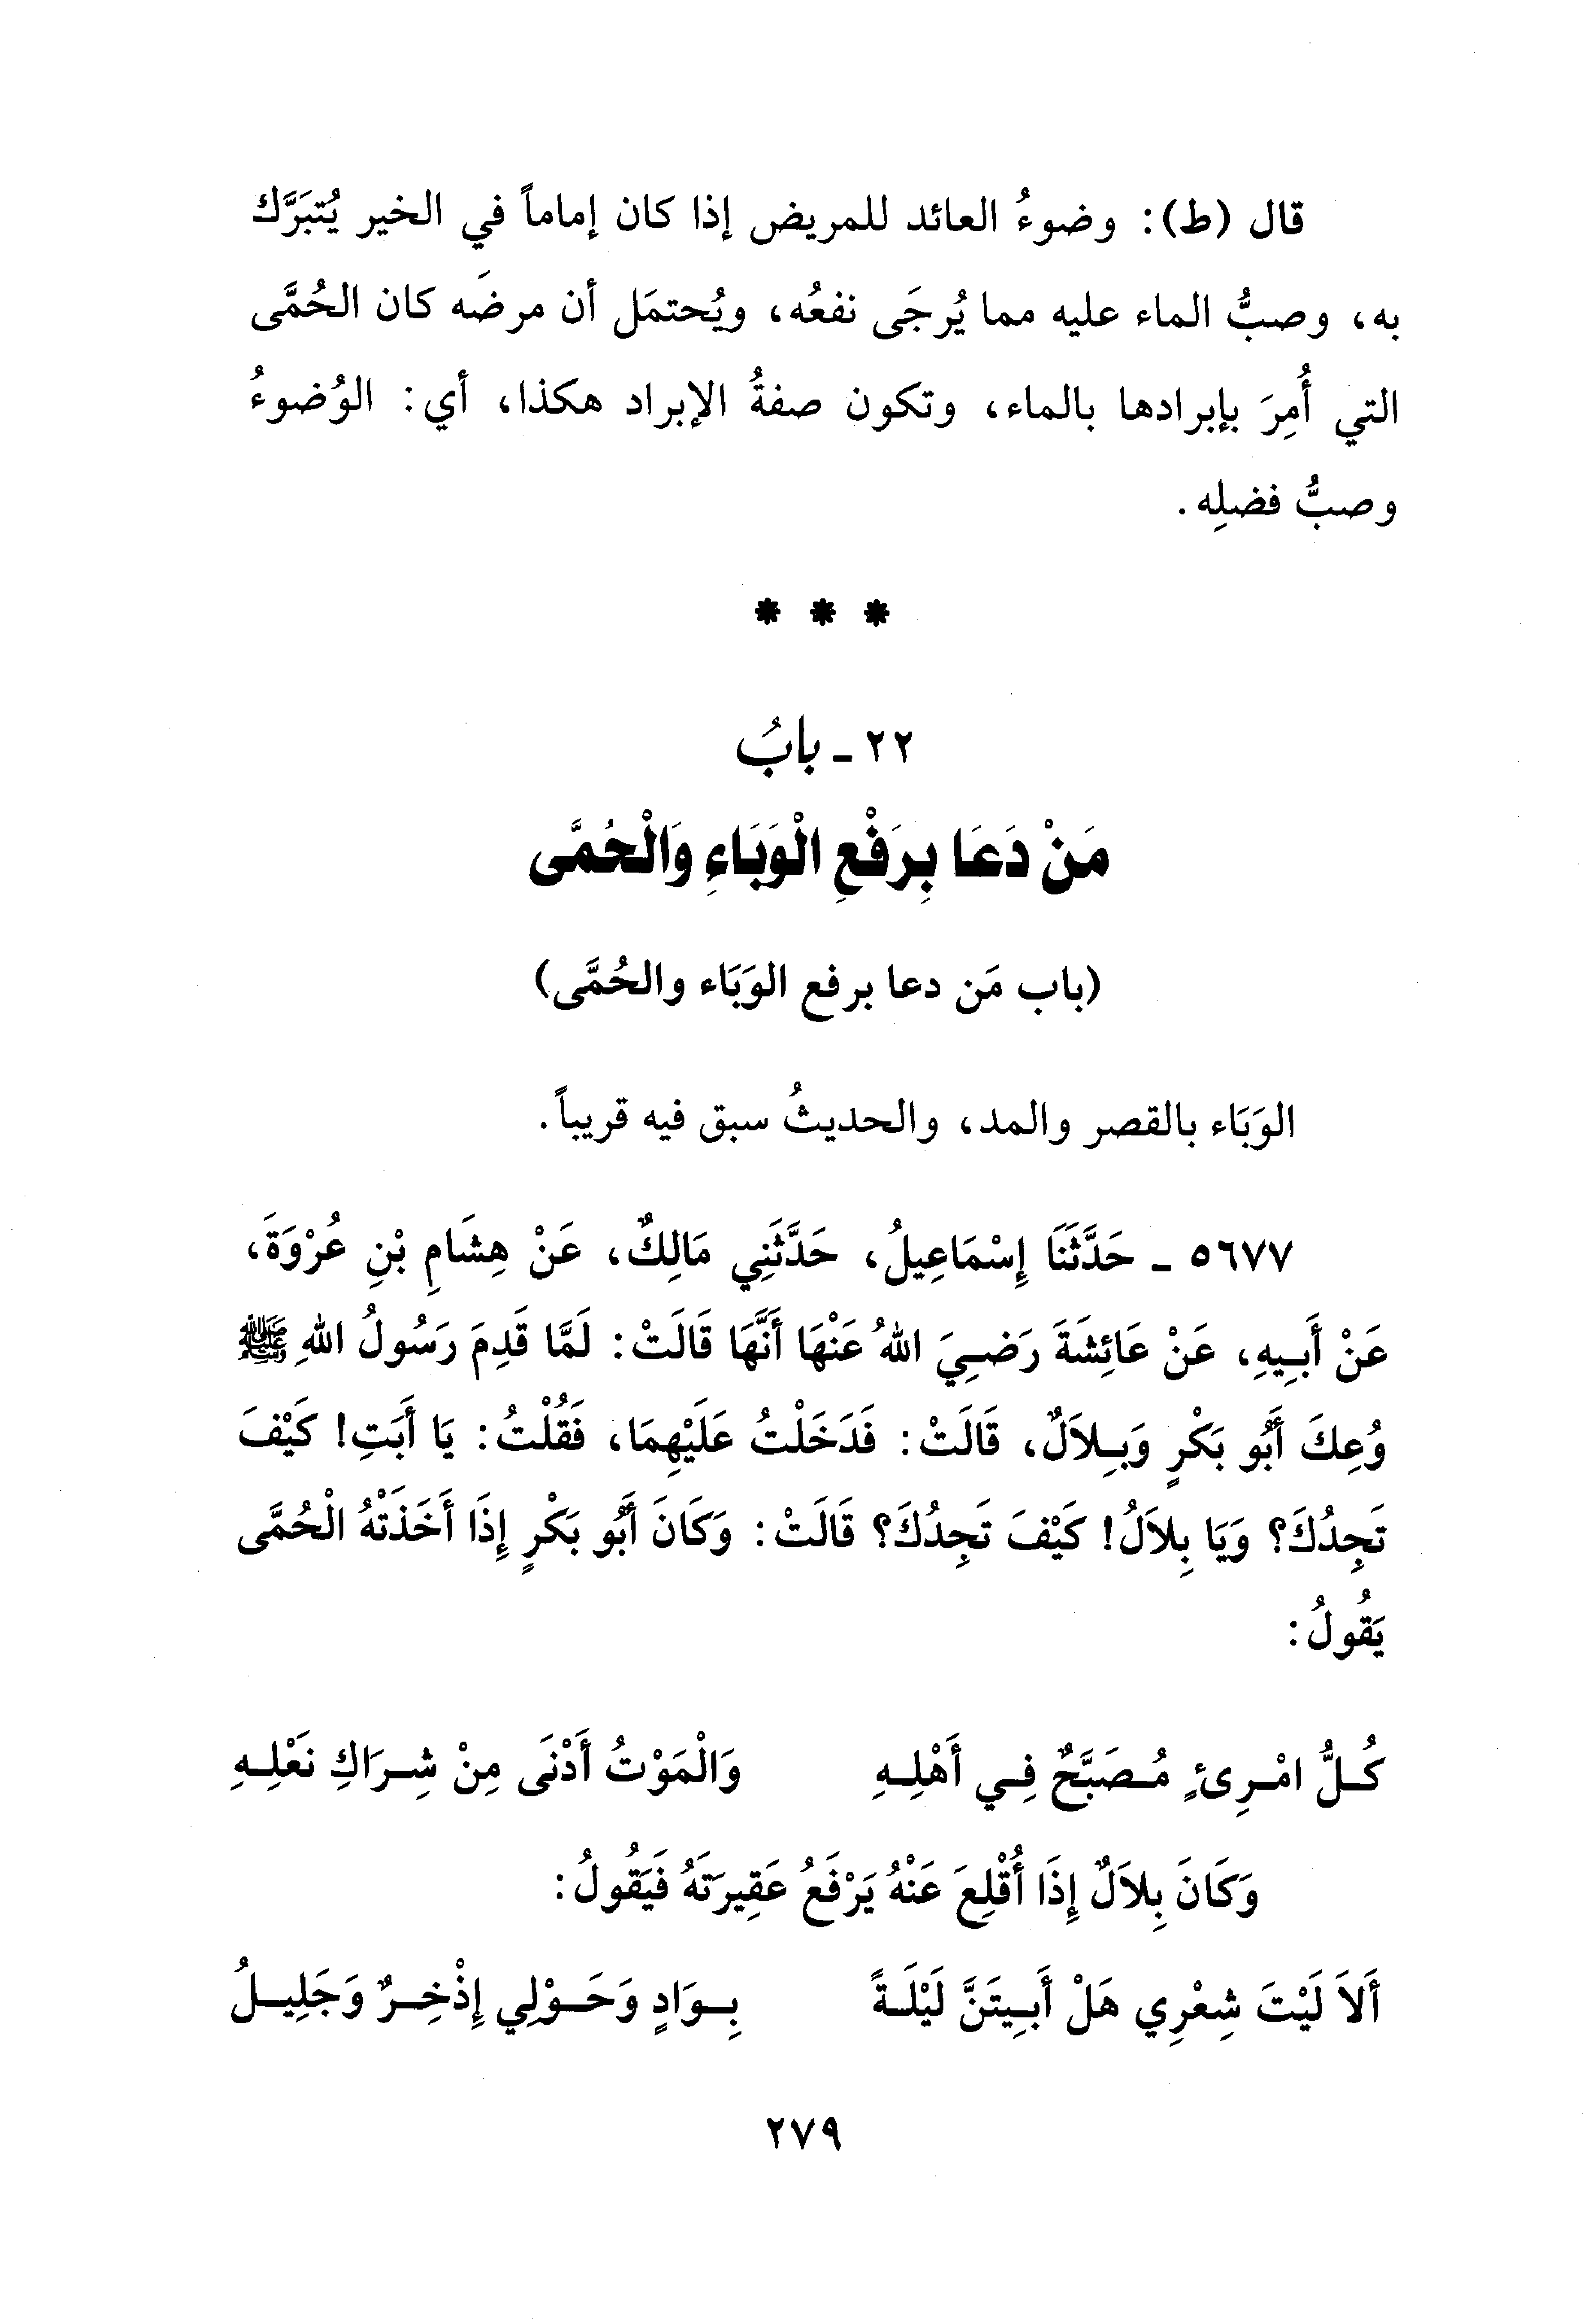 قال (ط): وضوءُ العائد للمريض إذا كان إماماً في الخير يُتبَرَّك
به، وصبُّ الماء عليه مما يُرجَى نفعُه، ويُحتمَل أن مرضَه كان الحُمَّى
التي أُمِرَ بإبرادها بالماء، وتكون صفةُ الإبراد هكذا، أي: الوُضوءُ
وصبُّ فضلِه.
* * *
٢٢ - بابُ
مَنْ دَعَا بِرَفْعِ الْوَبَاءِ وَالْحُمَّى
(باب مَن دعا برفع الوَبَاء والحُمَّى)
الوَبَاء بالقصر والمد، والحديثُ سبق فيه قريباً.
٥٦٧٧ - حَدَّثَنَا إِسْمَاعِيلُ، حَدَّثَنِي مَالِكٌ، عَنْ هِشَامِ بْنِ عُرْوَةَ،
عَنْ أَبِيهِ، عَنْ عَائِشَةَ رَضِيَ اللهُ عَنْهَا أَنَّهَا قَالَتْ: لَمَّا قَدِمَ رَسُولُ اللهِ ﷺ
وُعِكَ أَبُو بَكْرٍ وَبِلاَلٌ، قَالَتْ: فَدَخَلْتُ عَلَيْهِمَا، فَقُلْتُ: يَا أَبَتِ! كَيْفَ
تَجِدُكَ؟ وَيَا بِلاَلُ! كَيْفَ تَجِدُكَ؟ قَالَتْ: وَكَانَ أَبُو بَكْرٍ إِذَا أَخَذَتْهُ الْحُمَّى
يَقُولُ:
كُلُّ امْرِئٍ مُصَبَّحٌ فِي أَهْلِهِ وَالْمَوْتُ أَدْنَى مِنْ شِرَاكِ نَعْلِهِ
وَكَانَ بِلاَلٌ إِذَا أُقْلِعَ عَنْهُ يَرْفَعُ عَقِيرَتَهُ فَيَقُولُ:
أَلاَ لَيْتَ شِعْرِي هَلْ أَبِيتَنَّ لَيْلَةً بِوَادٍ وَحَوْلِي إِذْخِرٌ وَجَلِيلُ
٢٧٩